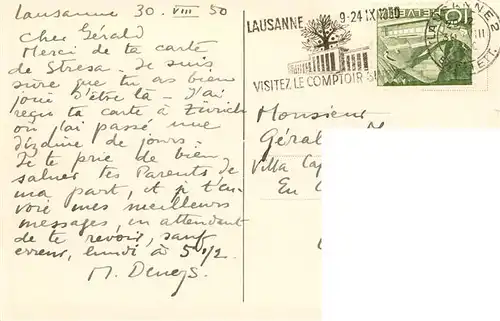 Lausanne 30. VIII 50
Cher Gérald
Merci de ta carte
de Stresa. Je suis
sûre que tu as bien
joui d'être là - J'ai
reçu ta carte à Zürich
où j'ai passé une
dizaine de jours.
Je te prie de bien
saluer tes Parents de
ma part, et je t'en-
voie mes meilleurs
messages, en attendant
de te revoir, sauf
erreur, lundi à 5 1/2
M.
LAUSANNE 9-24 IX 1950
VISITEZ LE COMPTOIR
LAUSANNE 2
HELVETIA
10
Monsieur
Gérald
Villa
En